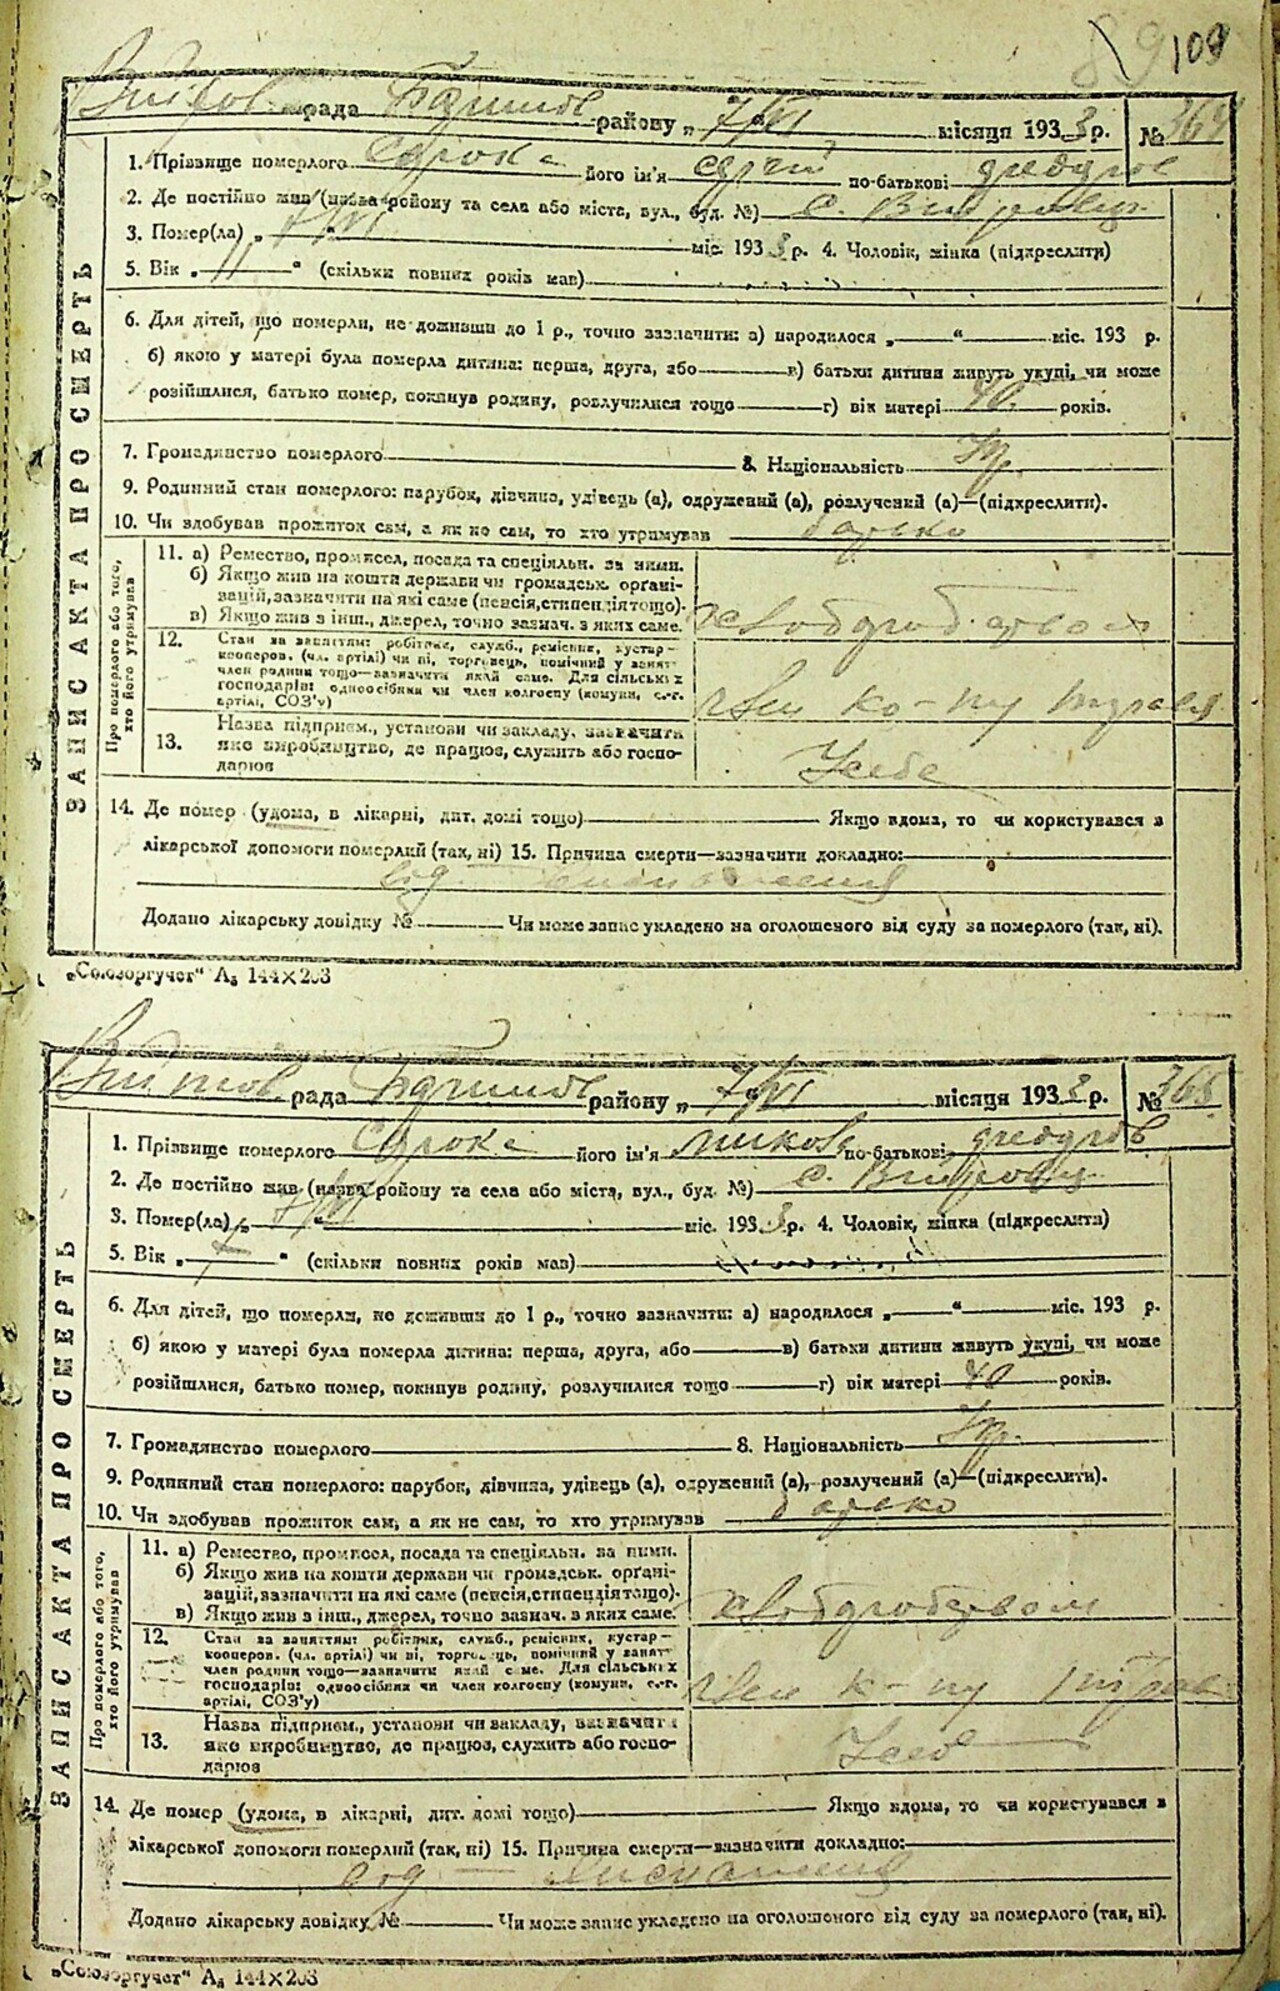 89 109
рада Баришов району „ 7/VI місяця 1933 р. № 364
1. Прізвище померлого Сорока його ім'я Сергій по-батькові Федоров
2. Де постійно жив (назва району та села або міста, вул., буд. №) с.
3. Помер(ла) „ 7/VI " міс. 1933 р. 4. Чоловік, жінка (підкреслити)
5. Вік „ 11 " (скільки повних років мав)
6. Для дітей, що померли, не доживши до 1 р., точно зазначити: а) народилося „ " міс. 193 р.
б) якою у матері була померла дитина: перша, друга, або в) батьки дитини живуть укупі, чи може
розійшлися, батько помер, покинув родину, розлучилися тощо г) вік матері 40 років.
7. Громадянство померлого 8. Національність Укр.
9. Родинний стан померлого: парубок, дівчина, удівець (а), одружений (а), розлучений (а)—(підкреслити).
10. Чи здобував прожиток сам, а як не сам, то хто утримував батько
ЗАПИС АКТА ПРО СМЕРТЬ
Про померлого або того, хто його утримував
11. а) Ремество, промисел, посада та спеціяльн. за ними.
б) Якщо жив на кошти держави чи громадськ. орґані-
зацій, зазначити на які саме (пенсія, стипендія тощо).
в) Якщо жив з інш., джерел, точно зазнач. з яких саме.
хлібороб
12. Стан за заняттям: робітник, служб., ремісник, кустар—
кооперов. (чл. артілі) чи ні, торговець, помічний у занятт
член родини тощо—зазначити який саме. Для сільських
господарів: одноосібник чи член колгоспу (комуни, с.-г.
артілі, СОЗ'у)
член ко-пу
13. Назва підприєм., установи чи закладу, зазначити
яке виробництво, де працює, служить або госпо-
дарює
14. Де помер (удома, в лікарні, дит. домі тощо) Якщо вдома, то чи користувався з
лікарської допомоги померлий (так, ні) 15. Причина смерти—зазначити докладно:
від
Додано лікарську довідку № Чи може запис укладено на оголошеного від суду за померлого (так, ні).
„Союзоргучет" А₅ 144×203
рада Баришов району „ 7/VI місяця 1933 р. № 365
1. Прізвище померлого Сорока його ім'я Микола по-батькові Федоров
2. Де постійно жив (назва району та села або міста, вул., буд. №) с.
3. Помер(ла) „ 7/VI " міс. 1933 р. 4. Чоловік, жінка (підкреслити)
5. Вік „ " (скільки повних років мав)
6. Для дітей, що померли, не доживши до 1 р., точно зазначити: а) народилося „ " міс. 193 р.
б) якою у матері була померла дитина: перша, друга, або в) батьки дитини живуть укупі, чи може
розійшлися, батько помер, покинув родину, розлучилися тощо г) вік матері 40 років.
7. Громадянство померлого 8. Національність Укр.
9. Родинний стан померлого: парубок, дівчина, удівець (а), одружений (а), розлучений (а)—(підкреслити).
10. Чи здобував прожиток сам, а як не сам, то хто утримував батько
ЗАПИС АКТА ПРО СМЕРТЬ
Про померлого або того, хто його утримував
11. а) Ремество, промисел, посада та спеціяльн. за ними.
б) Якщо жив на кошти держави чи громадськ. орґані-
зацій, зазначити на які саме (пенсія, стипендія тощо).
в) Якщо жив з інш., джерел, точно зазнач. з яких саме.
12. Стан за заняттям: робітник, служб., ремісник, кустар—
кооперов. (чл. артілі) чи ні, торговець, помічний у занятт
член родини тощо—зазначити який саме. Для сільських
господарів: одноосібник чи член колгоспу (комуни, с.-г.
артілі, СОЗ'у)
член к-пу
13. Назва підприєм., установи чи закладу, зазначити
яке виробництво, де працює, служить або госпо-
дарює
14. Де помер (удома, в лікарні, дит. домі тощо) Якщо вдома, то чи користувався з
лікарської допомоги померлий (так, ні) 15. Причина смерти—зазначити докладно:
від
Додано лікарську довідку № Чи може запис укладено на оголошеного від суду за померлого (так, ні).
„Союзоргучет" А₅ 144×203